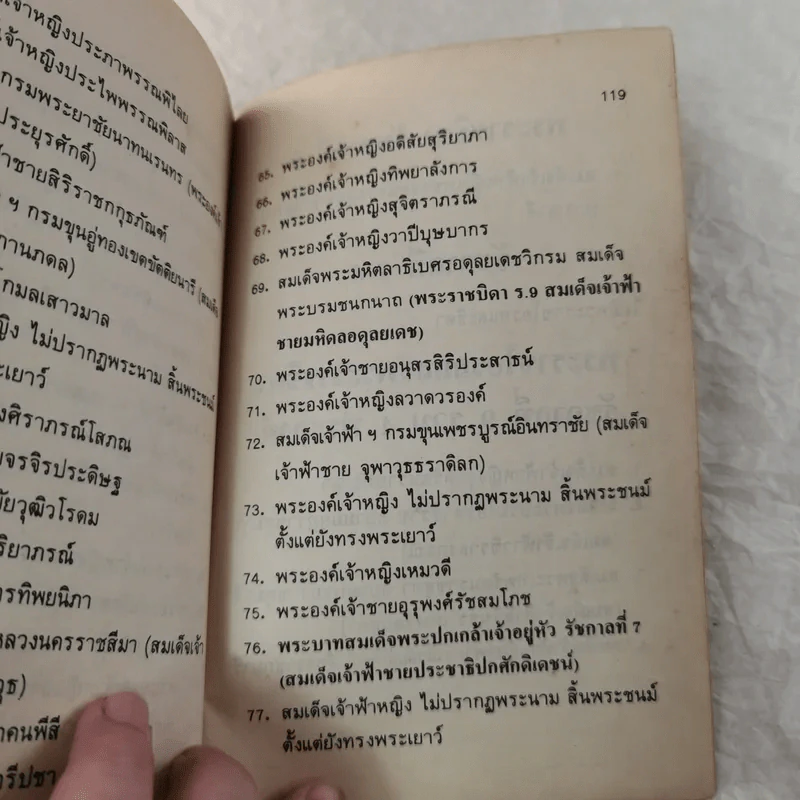 เจ้าหญิงประภาพรรณพิไลย
เจ้าหญิงประไพพรรณพิลาส
กรมพระยาชัยนาทนเรนทร (พระองค์เจ้า
ประยูรศักดิ์)
ฟ้าชายสิริราชกกุธภัณฑ์
ฯ กรมขุนอู่ทองเขตขัตติยนารี (สมเด็จ
โกมลเสาวมาล
ไม่ปรากฏพระนาม สิ้นพระชนม์
พระเยาว์
ศิราภรณ์โสภณ
จรจิรประดิษฐ
วุฒิวโรดม
ทิพยนิภา
หลวงนครราชสีมา (สมเด็จเจ้า
119
65. พระองค์เจ้าหญิงอดิสัยสุริยาภา
66. พระองค์เจ้าหญิงทิพยาลังการ
67. พระองค์เจ้าหญิงสุจิตราภรณี
68. พระองค์เจ้าหญิงวาปีบุษบากร
69. สมเด็จพระมหิตลาธิเบศรอดุลยเดชวิกรม สมเด็จ
พระบรมชนกนาถ (พระราชบิดา ร.9 สมเด็จเจ้าฟ้า
ชายมหิดลอดุลยเดช)
70. พระองค์เจ้าชายอนุสรสิริประสาธน์
71. พระองค์เจ้าหญิงลวาดวรองค์
72. สมเด็จเจ้าฟ้า ฯ กรมขุนเพชรบูรณ์อินทราชัย (สมเด็จ
เจ้าฟ้าชาย จุฑาวุธธราดิลก)
73. พระองค์เจ้าหญิง ไม่ปรากฏพระนาม สิ้นพระชนม์
ตั้งแต่ยังทรงพระเยาว์
74. พระองค์เจ้าหญิงเหมวดี
75. พระองค์เจ้าชายอุรุพงศ์รัชสมโภช
76. พระบาทสมเด็จพระปกเกล้าเจ้าอยู่หัว รัชกาลที่ 7
(สมเด็จเจ้าฟ้าชายประชาธิปกศักดิเดชน์)
77. สมเด็จเจ้าฟ้าหญิง ไม่ปรากฏพระนาม สิ้นพระชนม์
ตั้งแต่ยังทรงพระเยาว์